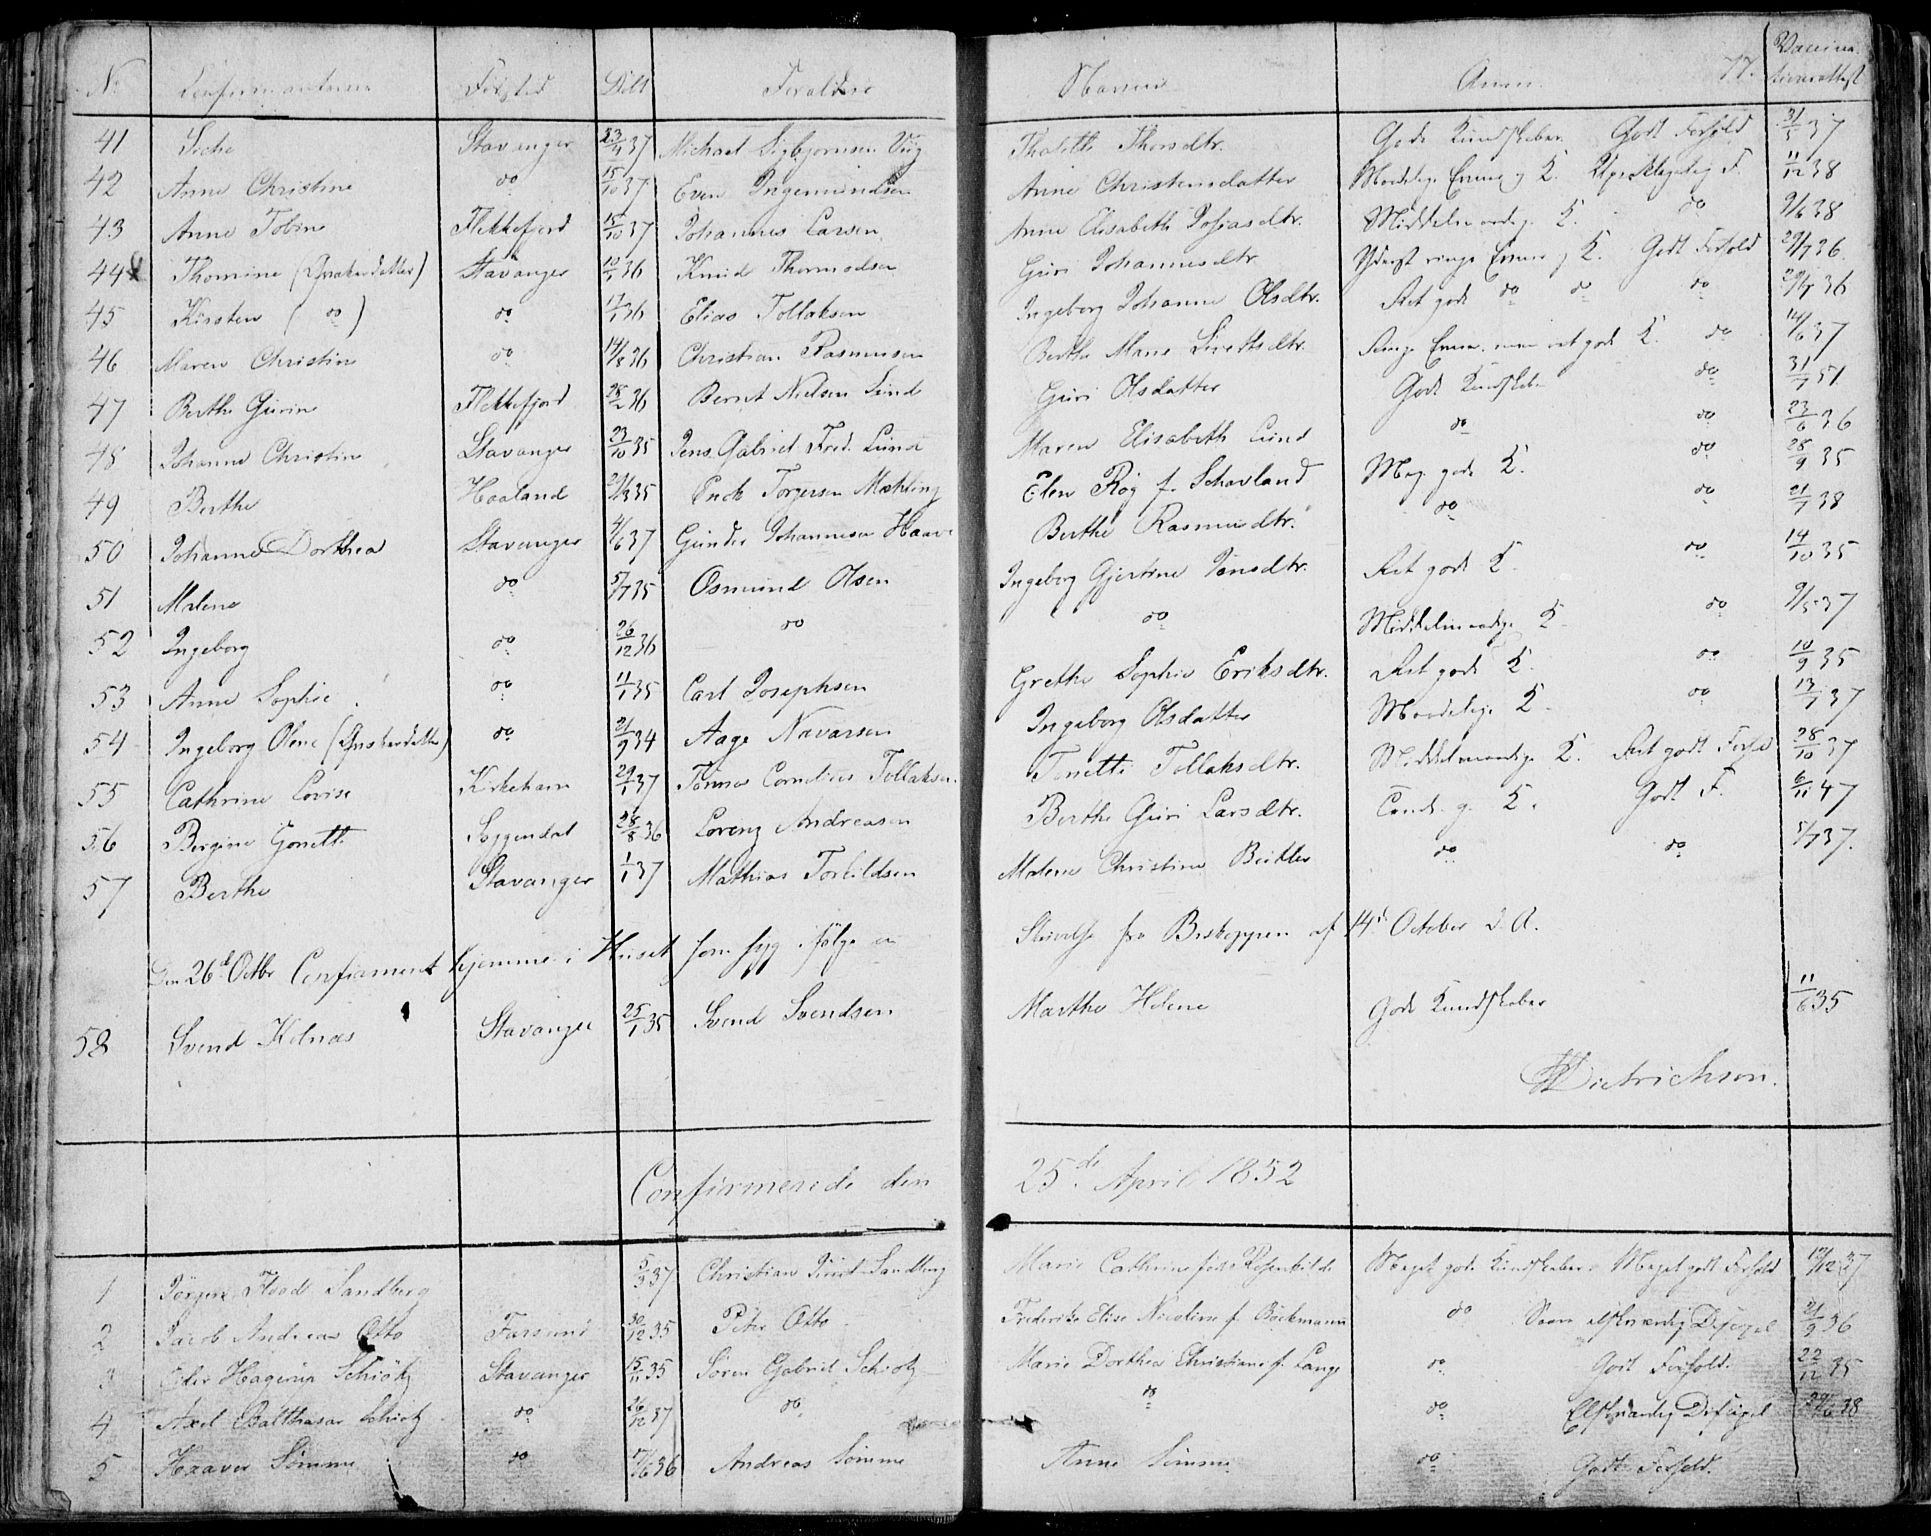 No Confirmanterne Födsted Dito Forældre Navne Anm. 77. Vaccina-
tionsattest
41 Stavanger 23/11 37 Michael Sigbjørnsen Viig Thalette Thorsdtr. Gode Kundskaber Godt Forhold 31/5 37
42 Anne Christine do 15/10 37 Even Ingemundsen Anne Christensdatter Maadelige Evner og K. Upaaklagelig F. 11/12 38
43 Anne Tobine Flekkefjord 15/10 37 Johannes Larsen Anne Elisabeth Josiasdtr. Middelmaadige K. do 9/6 38
44 Thomine (Qvækerdatter) Stavanger 10/5 36 Knud Thormodsen Guri Johannesdtr. Yderst ringe Evner og K. Godt Forhold 29/7 36.
45 Kirsten ( do ) do 17/1 36 Elias Tollaksen Ingeborg Johanne Olsdtr. Ret gode do do do 29/7 36
46 Maren Christine do 14/8 36 Christian Rasmusen Berthe Marie Sivertsdtr. Ringe Evner, men ret gode K. do 14/6 37
47 Berthe Gurine Flekkefjord 28/2 36 Bernt Nielsen Lund Guri Olsdatter Gode Kundskaber do 31/7 51
48 Johanne Christine Stavanger 23/10 35 Jens Gabriel Fred. Lund Maren Elisabeth Lund do do 23/6 36
49 Berthe Haaland 21/3 35 Endr Torgersen Mæhling Elen Røg f. Schavland Meg. gode K. do 28/9 35
50 Johanne Dorthea Stavanger 4/6 37 Gunder Johannesen Haave Berthe Rasmusdtr. do do 21/7 38
51 Malene do 5/7 35 Osmund Olsen Ingeborg Gjertine Jonsdtr. Ret gode K. do 14/10 35
52 Ingeborg do 26/12 36 do do Middelmaadige K. do 9/5 37
53 Anne Sophie do 11/1 35 Carl Josephsen Grethe Sophie Eriksdtr. Ret gode K. do 10/9 35
54 Ingeborg Olene (Qvækerdatter) do 21/9 34 Aage Navarsen Ingeborg Olsdatter Maadelige K. do 13/7 37
55 Cathrine Lovise Kirkehavn 29/1 37 Tønnes Cornelius Tollaksen Tonette Tollaksdtr. Middelmaadige K. Ret godt Forhold 28/10 37
56 Bergine Gonette Soggendal 28/8 36 Lorenz Andreasen Berthe Guri Larsdtr. Temt. g. K. Godt F. 6/11 47
57 Berthe Stavanger 1/1 37 Mathias Torkildsen Malene Christine Beitler do do 5/7 37.
Den 26de Octbr Confirmeret hjemme i Huset som syg ifølge en Skrivelse fra Biskoppen af 14de October d. A.
58 Svend Kolnæs Stavanger 25/1 35 Svend Svendsen Marthe Helene Gode Kundskaber 11/6 35
Dietrichson.
Confirmerede den 25de April 1852
1 Jørgen Flood Sandberg 5/3 37 Christian Juul Sandberg Marie Cathrine født Rosenkilde Meget gode Kundskaber Meget godt Forhold 12/12 37
2 Jacob Andreas Otto Farsund 30/12 35 Peter Otto Frederikke Elise Nicoline f. Böckmann do Saare elskværdig Discipel 21/9 36
3 Eiler Hagerup Schiötz Stavanger 15/11 35 Sören Gabriel Schiötz Marie Dorthea Christiane f. Lange do Godt Forhold. 22/12 35
4 Axel Balthasar Schiötz do 26/12 37 do do do Elskværdig Discipel 29/6 38
5 Haaver Sömme do 17/6 36 Andreas Sömme Anne Sömme do Godt Forhold.